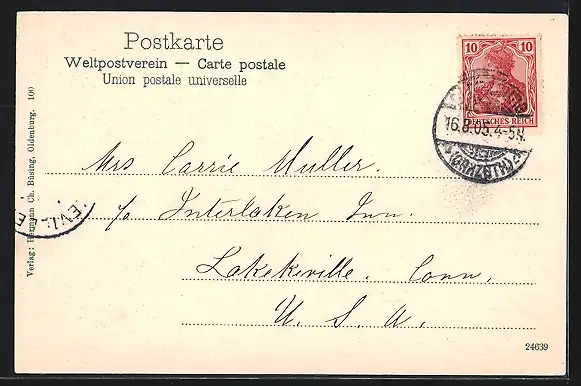 Postkarte
Weltpostverein — Carte postale
Union postale universelle
10 10
DEUTSCHES REICH
16.8.05.4-5N.
Mrs Carrie Muller.
c/o Interlaken Inn.
Lakekeville. Conn.
U. S. A.
Verlag: Hermann Ch. Büsing, Oldenburg. 100
24639